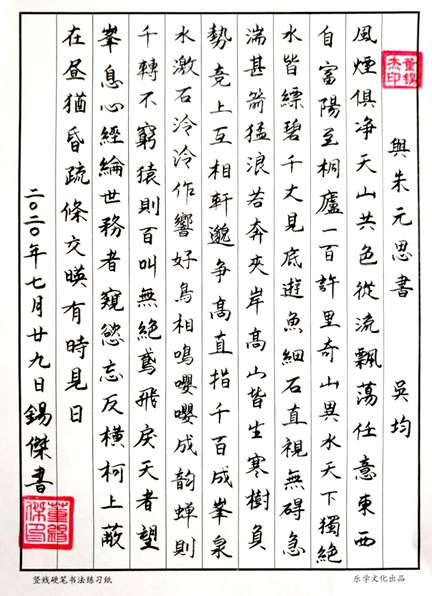 與朱元思書 吳均
風煙俱净天山共色從流飄蕩任意東西
自富陽至桐廬一百許里奇山異水天下獨絕
水皆縹碧千丈見底遊魚細石直視無碍急
湍甚箭猛浪若奔夾岸高山皆生寒樹負
勢竞上互相軒邈爭高直指千百成峯泉
水激石泠泠作響好鳥相鳴嚶嚶成韵蟬則
千轉不窮猿則百叫無絕鳶飛戾天者望
峯息心經綸世務者窺慾忘反橫柯上蔽
在昼猶昏疏條交暎有時見日
二〇二〇年七月廿九日錫傑書
董錫傑印
董錫傑印
竖线硬笔书法练习纸
乐学文化出品